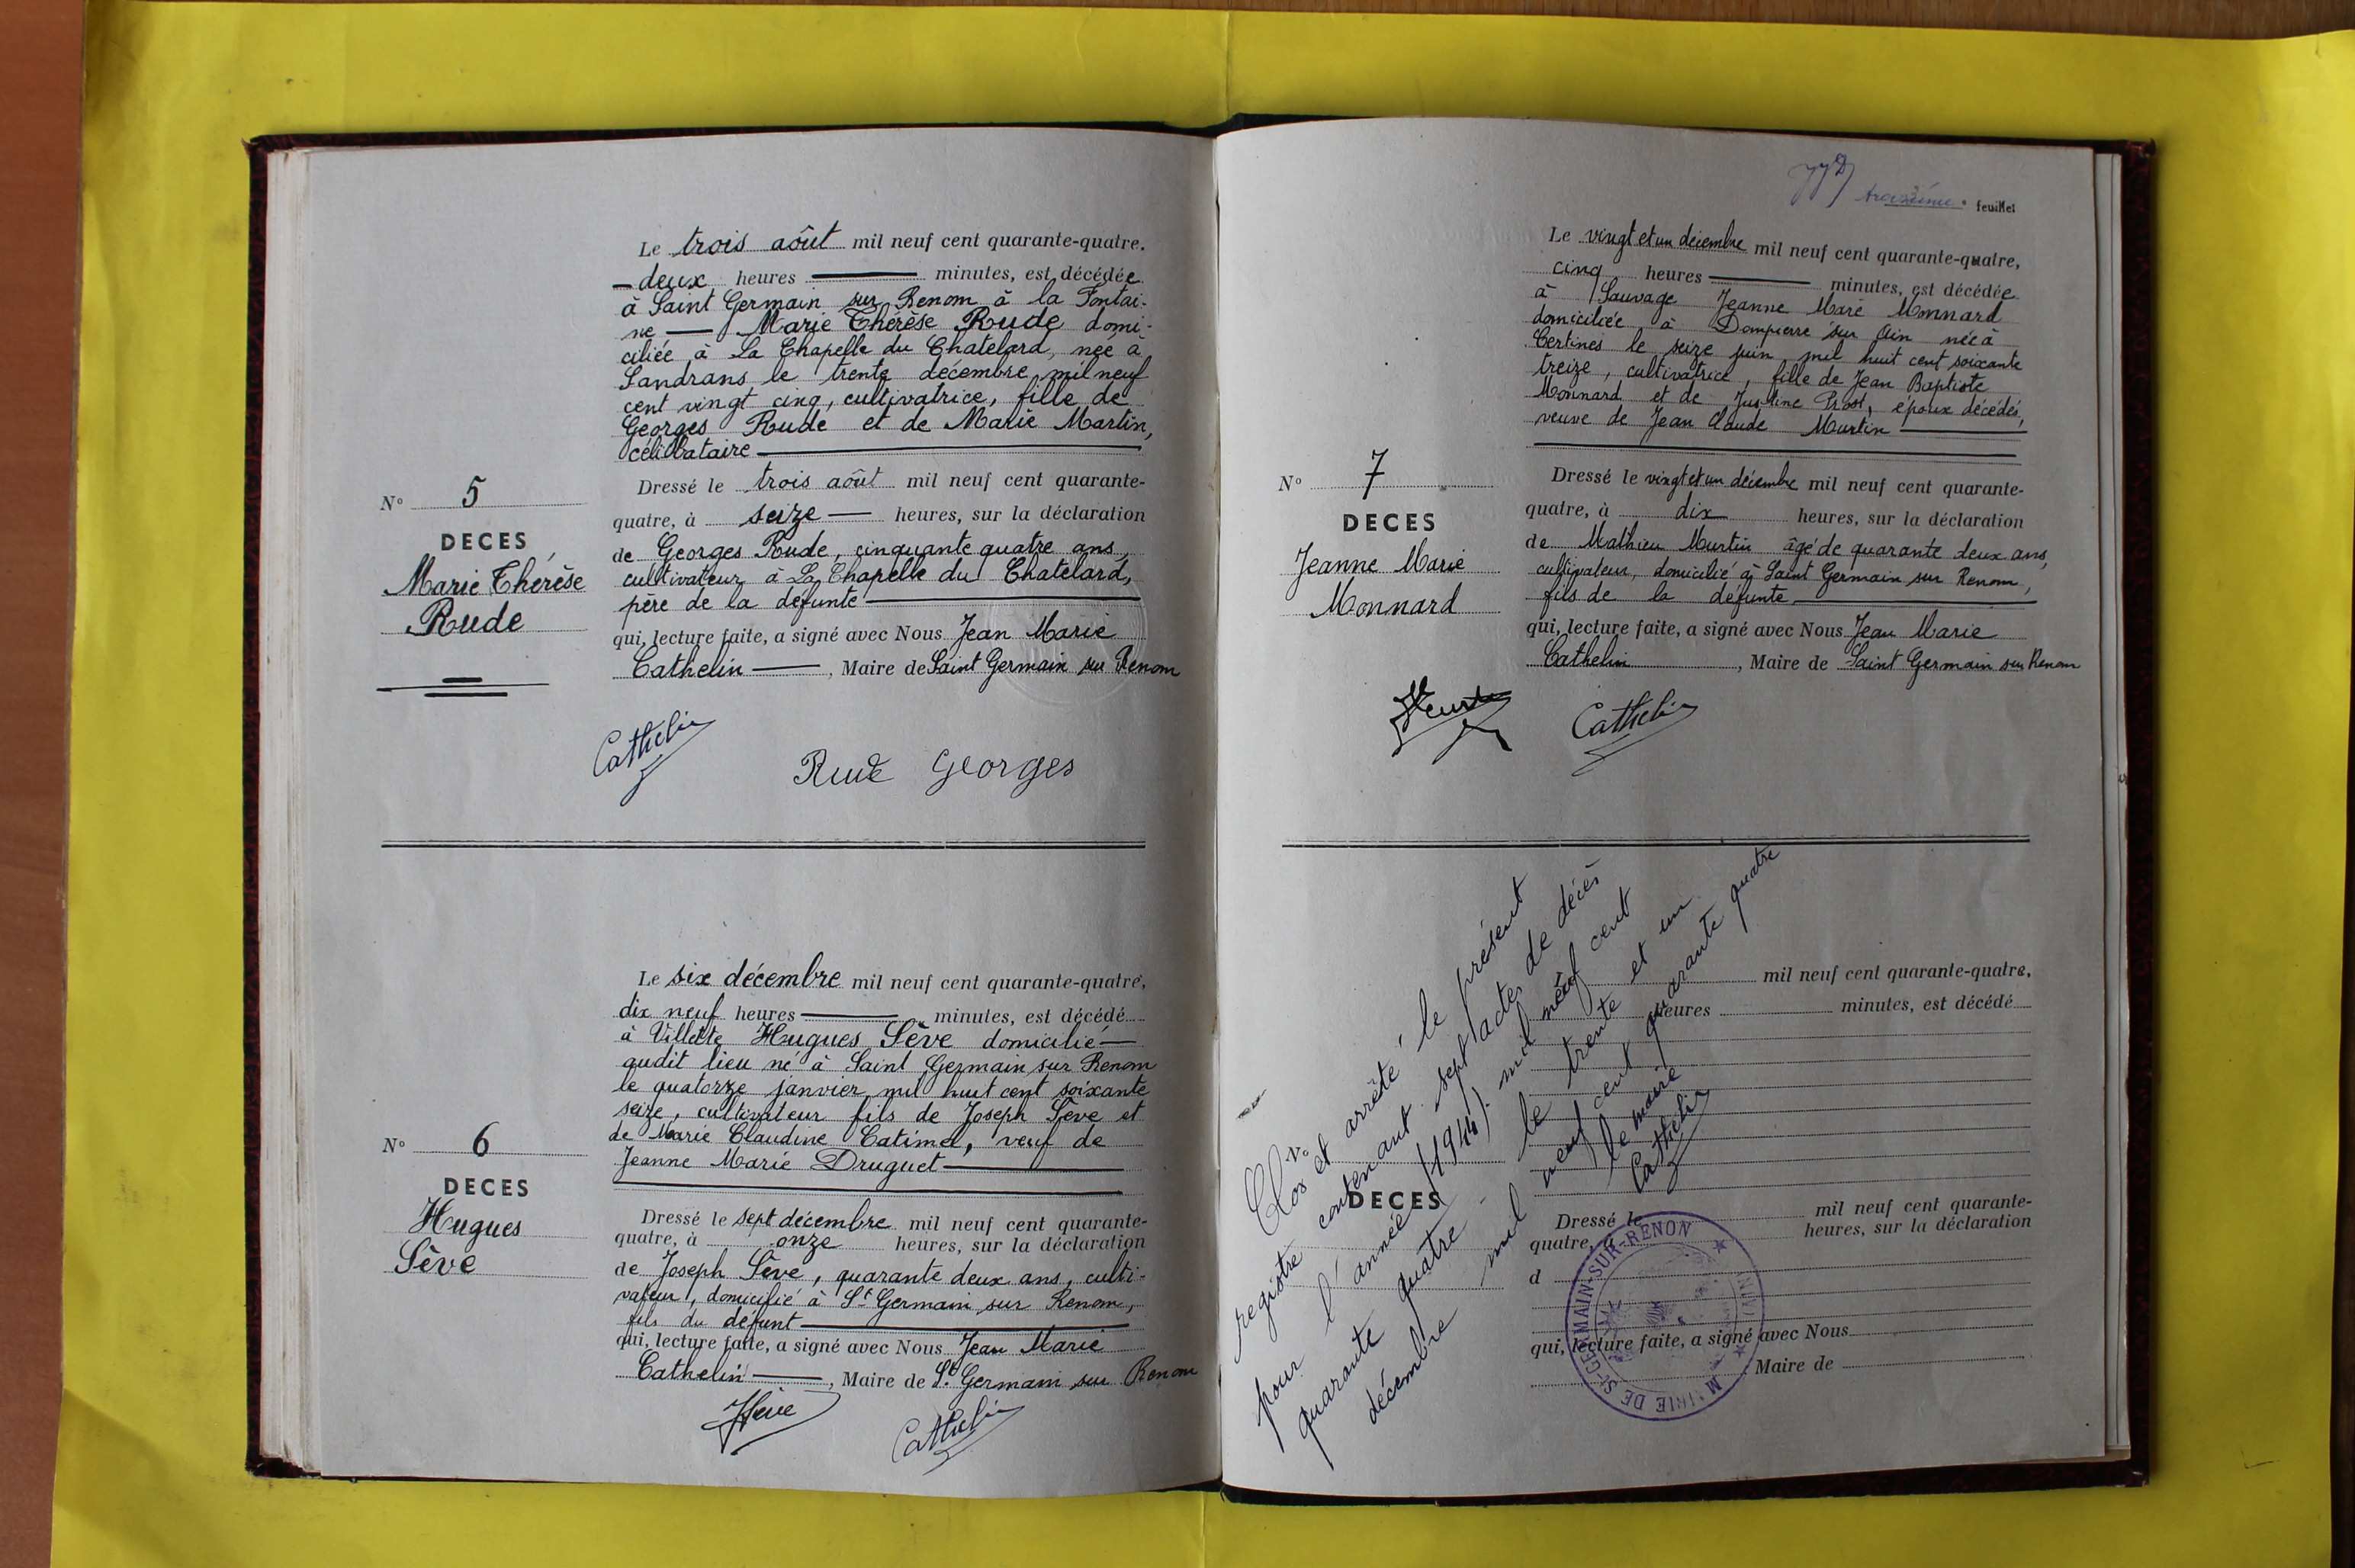 Le trois aôut mil neuf cent quarante-quatre.
deux heures minutes, est décédée
à Saint Germain sur Renom à la Fontai-
ne Marie Thérèse Rude domi-
ciliée à La Chapelle du Chatelard, née à
Sandrans le trente décembre mil neuf
cent vingt cinq, cultivatrice, fille de
Georges Rude et de Marie Martin,
célibataire
N° 5
DECES
Marie Thérèse
Rude
Dressé le trois aôut mil neuf cent quarante-
quatre, à seize heures, sur la déclaration
de Georges Rude, cinquante quatre ans,
cultivateur à La Chapelle du Chatelard,
père de la défunte
qui, lecture faite, a signé avec Nous Jean Marie
Cathelin, Maire de Saint Germain sur Renom
Cathelin
Rude Georges
Le six décembre mil neuf cent quarante-quatre,
dix neuf heures minutes, est décédé
à Villette Hugues Sève domicilié
audit lieu né à Saint Germain sur Renom
le quatorze janvier mil huit cent soixante
seize, cultivateur fils de Joseph Sève et
de Marie Claudine Catimel, veuf de
Jeanne Marie Druguet
N° 6
DECES
Hugues
Sève
Dressé le sept décembre mil neuf cent quarante-
quatre, à onze heures, sur la déclaration
de Joseph Sève, quarante deux ans, culti-
vateur, domicilié à St Germain sur Renom,
fils du défunt
qui, lecture faite, a signé avec Nous Jean Marie
Cathelin, Maire de St Germain sur Renom
JSève
Cathelin
troisième feuillet
Le vingt et un décembre mil neuf cent quarante-quatre,
cinq heures minutes, est décédée
à Sauvage Jeanne Marie Monnard
domiciliée à Dompierre sur Ain née à
Certines le seize juin mil huit cent soixante
treize, cultivatrice, fille de Jean Baptiste
Monnard et de Justine Prost, époux décédés,
veuve de Jean Claude Murtin
N° 7
DECES
Jeanne Marie
Monnard
Dressé le vingt et un décembre mil neuf cent quarante-
quatre, à dix heures, sur la déclaration
de Mathieu Murtin âgé de quarante deux ans,
cultivateur, domicilié à Saint Germain sur Renom,
fils de la défunte
qui, lecture faite, a signé avec Nous Jean Marie
Cathelin, Maire de Saint Germain sur Renom
Cathelin
Clos et arrêté le présent
registre contenant sept actes de décès
pour l'année (1944) mil neuf cent
quarante quatre - le trente et un
décembre mil neuf cent quarante quatre
le maire
Cathelin
mil neuf cent quarante-quatre,
heures minutes, est décédé
N°
DECES
Dressé le mil neuf cent quarante-
quatre, à heures, sur la déclaration
d
qui, lecture faite, a signé avec Nous
, Maire de
MAIRIE DE ST-GERMAIN-SUR-RENON (AIN)